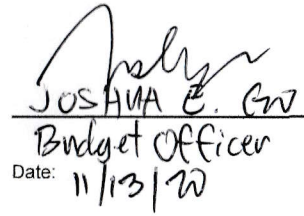 JOSHUA E. GO
Budget Officer
Date: 11/13/20